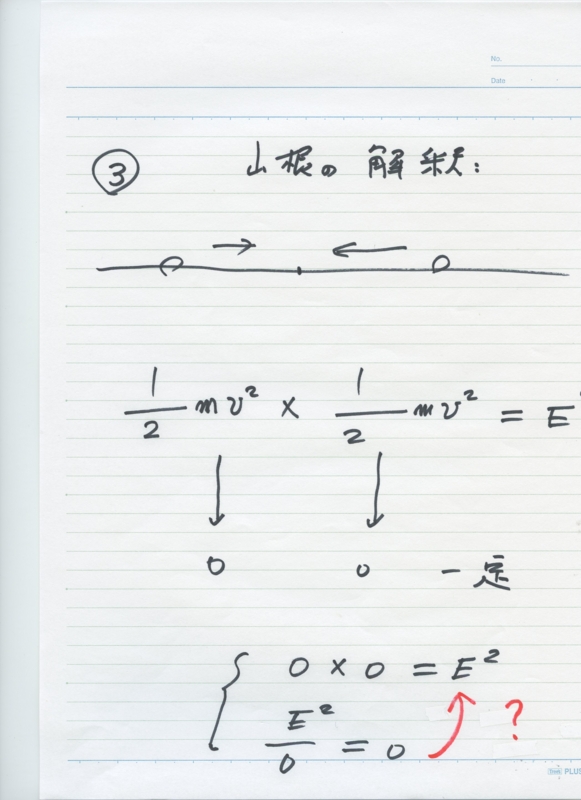 No.
Date
③ 山根の解釈:
1/2 mv² × 1/2 mv² = E
↓ ↓
0 0 一定
{ 0 × 0 = E²
E²/0 = 0 ?
PLUS